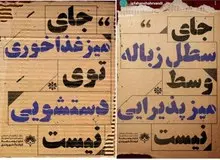 جای
میز غذاخوری
توی
دستشویی
نیست
جای
سطل زباله
وسط
میز پذیرایی
نیست